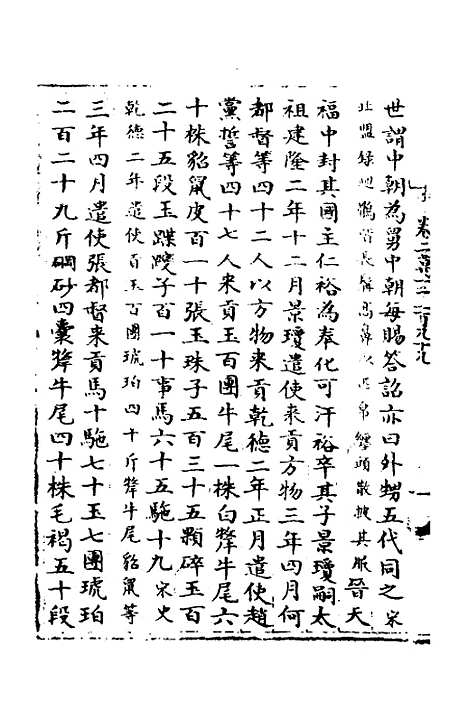 世謂中朝為舅中朝每賜荅詔亦曰外甥五代同之宋
北盟録廻鶻皆長髯高鼻以疋帛纒頭散披其服晉天
福中封其國主仁裕為奉化可汗裕卒其子景瓊嗣太
祖建隆二年十二月景瓊遣使来貢方物三年四月何
都督等四十二人以方物来貢乾德二年正月遣使趙
黨誓等四十七人来貢玉百團牛尾一株白犛牛尾六
十株貂䑕皮百一十張玉珠子五百三十五顆碎玉百
二十五段玉蹀躞子百一十事馬六十五駞十九宋史
乾德二年遣使貢玉百團琥珀四十斤犛牛尾貂䑕等
三年四月遣使張都督来貢馬十駞七十玉七團琥珀
二百二十九斤碙砂四囊犛牛尾四十株毛褐五十段